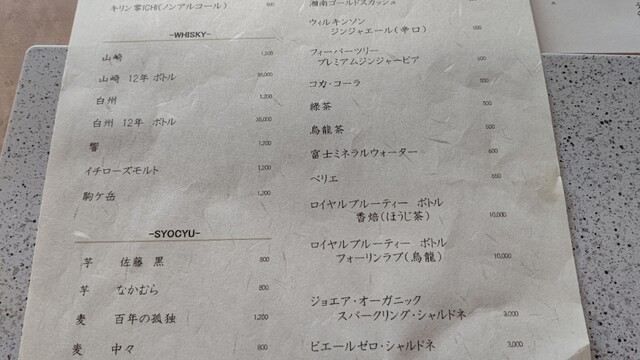 キリン零ICHI(ノンアルコール)
-WHISKY-
山崎 1,200
山崎 12年 ボトル
白州 1,200
白州 12年 ボトル 35,000
響 1,200
イチローズモルト 1,200
駒ケ岳 1,200
-SYOCYU-
芋 佐藤 黒 800
芋 なかむら 800
麦 百年の孤独 1,200
麦 中々 800
湘南ゴールドスカッシュ
ウィルキンソン
ジンジャエール(辛口) 500
フィーバーツリー
プレミアムジンジャービア
コカ・コーラ 500
緑茶 500
烏龍茶 500
富士ミネラルウォーター 600
ペリエ 650
ロイヤルブルーティー ボトル
香焙(ほうじ茶) 10,000
ロイヤルブルーティー ボトル
フォーリンラブ(烏龍) 10,000
ジョエア・オーガニック
スパークリング・シャルドネ 3,000
ピエールゼロ・シャルドネ 3,000